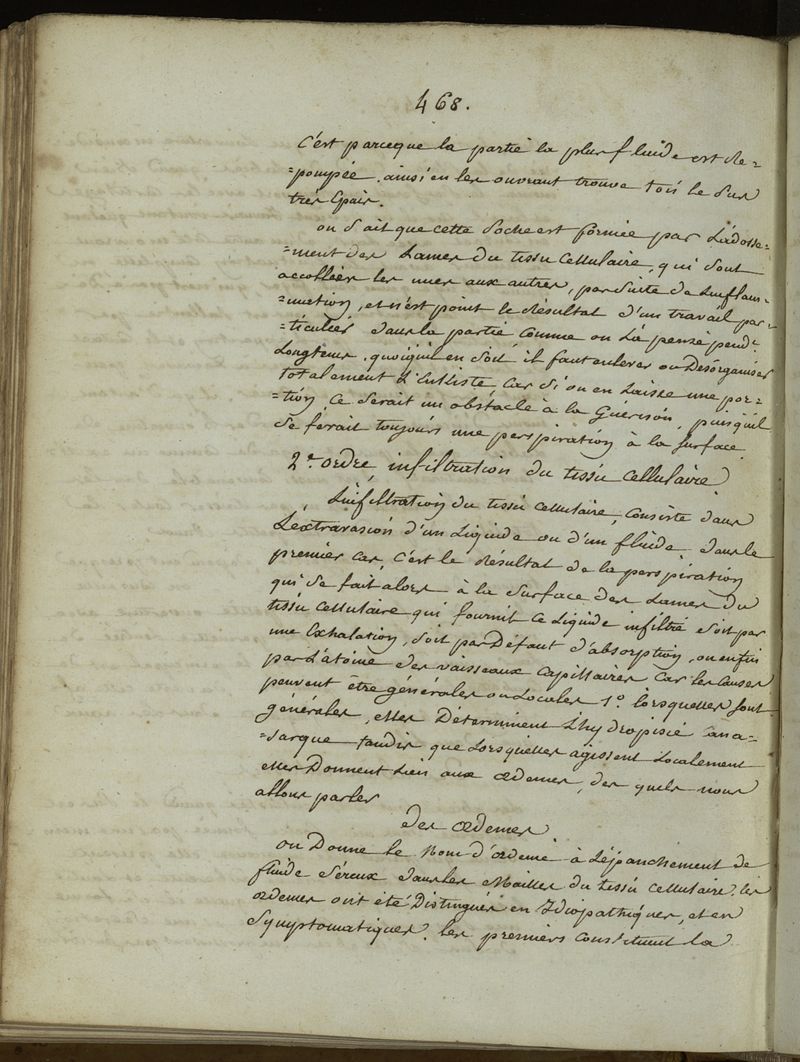 468.
C'est parceque la partie la plus fluide est re=
=pompée. ainsi en les ouvrant trouve t'on le Pus
très Epais.
on Sait que cette Poche est formée par L'adosse=
=ment des Lames du tissu Cellulaire, qui Sont
accollées les unes aux autres, par Suite de L'inflam=
=mation, et n'est point le Résultat d'un travail par=
=ticulier dans la partie Comme on L'a pensé pend.t
Longtems. quoiqu'il en Soit il faut enlever ou Désorganiser
totalement L'enkiste Car Si on en Laisse une por=
=tion, Ce Serait un obstacle à la Guerison, puisqu'il
Se ferait toujours une perspiration à la Surface.
2.e ordre, infiltration du tissu Cellulaire
L'infiltration du tissu Cellulaire, Consiste dans
L'éxtravasion d'un Liquide ou d'un fluide dans le
premier Cas, C'est le Résultat de la perspiration
qui Se fait alors à la Surface des Lames du
tissu Cellulaire qui fournit Ce Liquide infiltré Soit par
une Exhalation, Soit par Défaut d'absorption, ou enfin
par L'atonie des vaisseaux Capillaires Car les Causes
peuvent être générales ou Locales 1.o lorsquelles Sont
générales, elles Déterminent L'hydropisie ana=
=sarque tandis que Lorsquelles agissent Localement
elles Donnent Lieu aux œdemes, des quels nous
allons parler
Des œdemes
on Donne le Nom d'œdeme à L'épanchement de
fluide Séreux dans les Mailles du tissu Cellulaire. les
œdemes ont été Distingués en Idiopathiques, et en
Symptomatiques. les premiers Constituent la